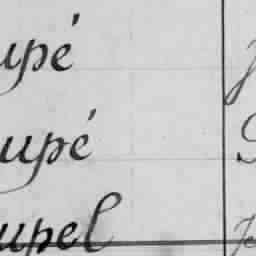 upé
upé
upel